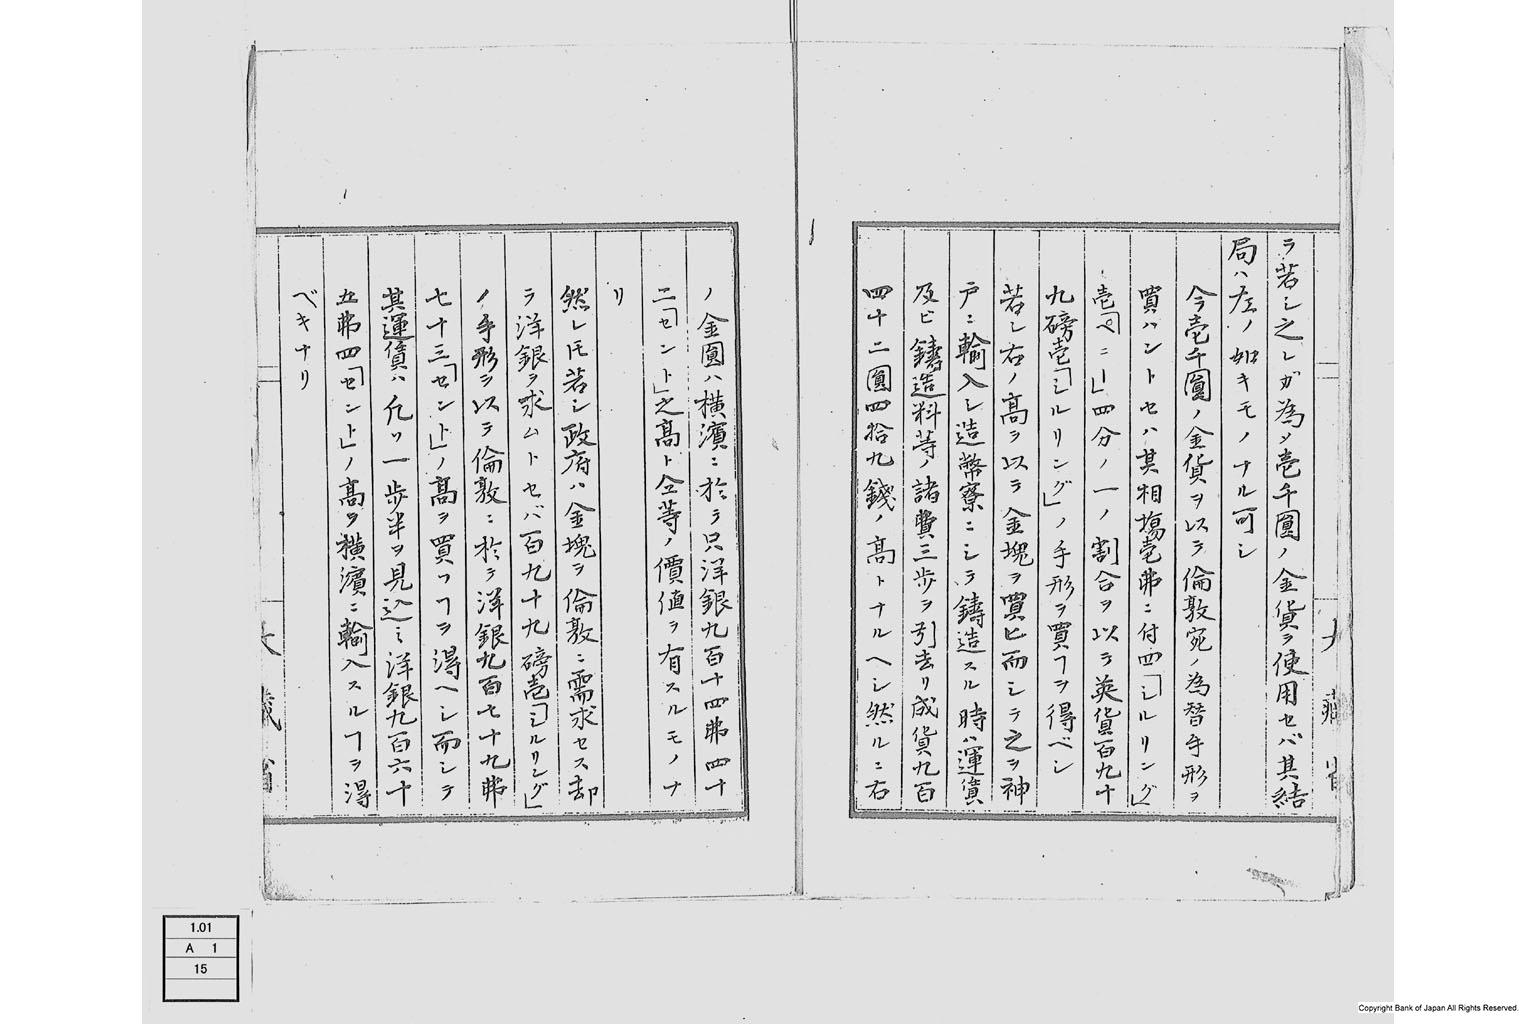 ラ若シ之レガ為メ壱千圓ノ金貨ヲ使用セバ其結
局ハ左ノ如キモノナル可シ
今壱千圓ノ金貨ヲ以テ倫敦宛ノ為替手形ヲ
買ハントセハ其相塲壱弗ニ付四「シルリング」
壱「ペニー」四分ノ一ノ割合ヲ以テ英貨百九十
九磅壱「シルリング」ノ手形ヲ買フヲ得ベシ
若シ右ノ高ヲ以テ金塊ヲ買ヒ而シテ之ヲ神
戸ニ輸入シ造幣寮ニシテ鋳造スル時ハ運賃
及ビ鋳造料等ノ諸費三歩ヲ引去リ成貨九百
四十二圓四拾九錢ノ高トナルヘシ然ルニ右
ノ金圓ハ横濱ニ於テ只洋銀九百十四弗四十
二「セント」之高ト仝等ノ價値ヲ有スルモノナ
リ
然レ𪜈若シ政府ハ金塊ヲ倫敦ニ需求セス却
テ洋銀ヲ求ムトセバ百九十九磅壱「シルリング」
ノ手形ヲ以テ倫敦ニ於テ洋銀九百七十九弗
七十三「セント」ノ高ヲ買フヿヲ得ヘシ而シテ
其運賃ハ凡ソ一歩半ヲ見込ミ洋銀九百六十
五弗四「セント」ノ高ヲ横濱ニ輸入スルヿヲ得
ベキナリ
大藏省
大藏省
1.01
A 1
15
Copyright Bank of Japan All Rights Reserved.